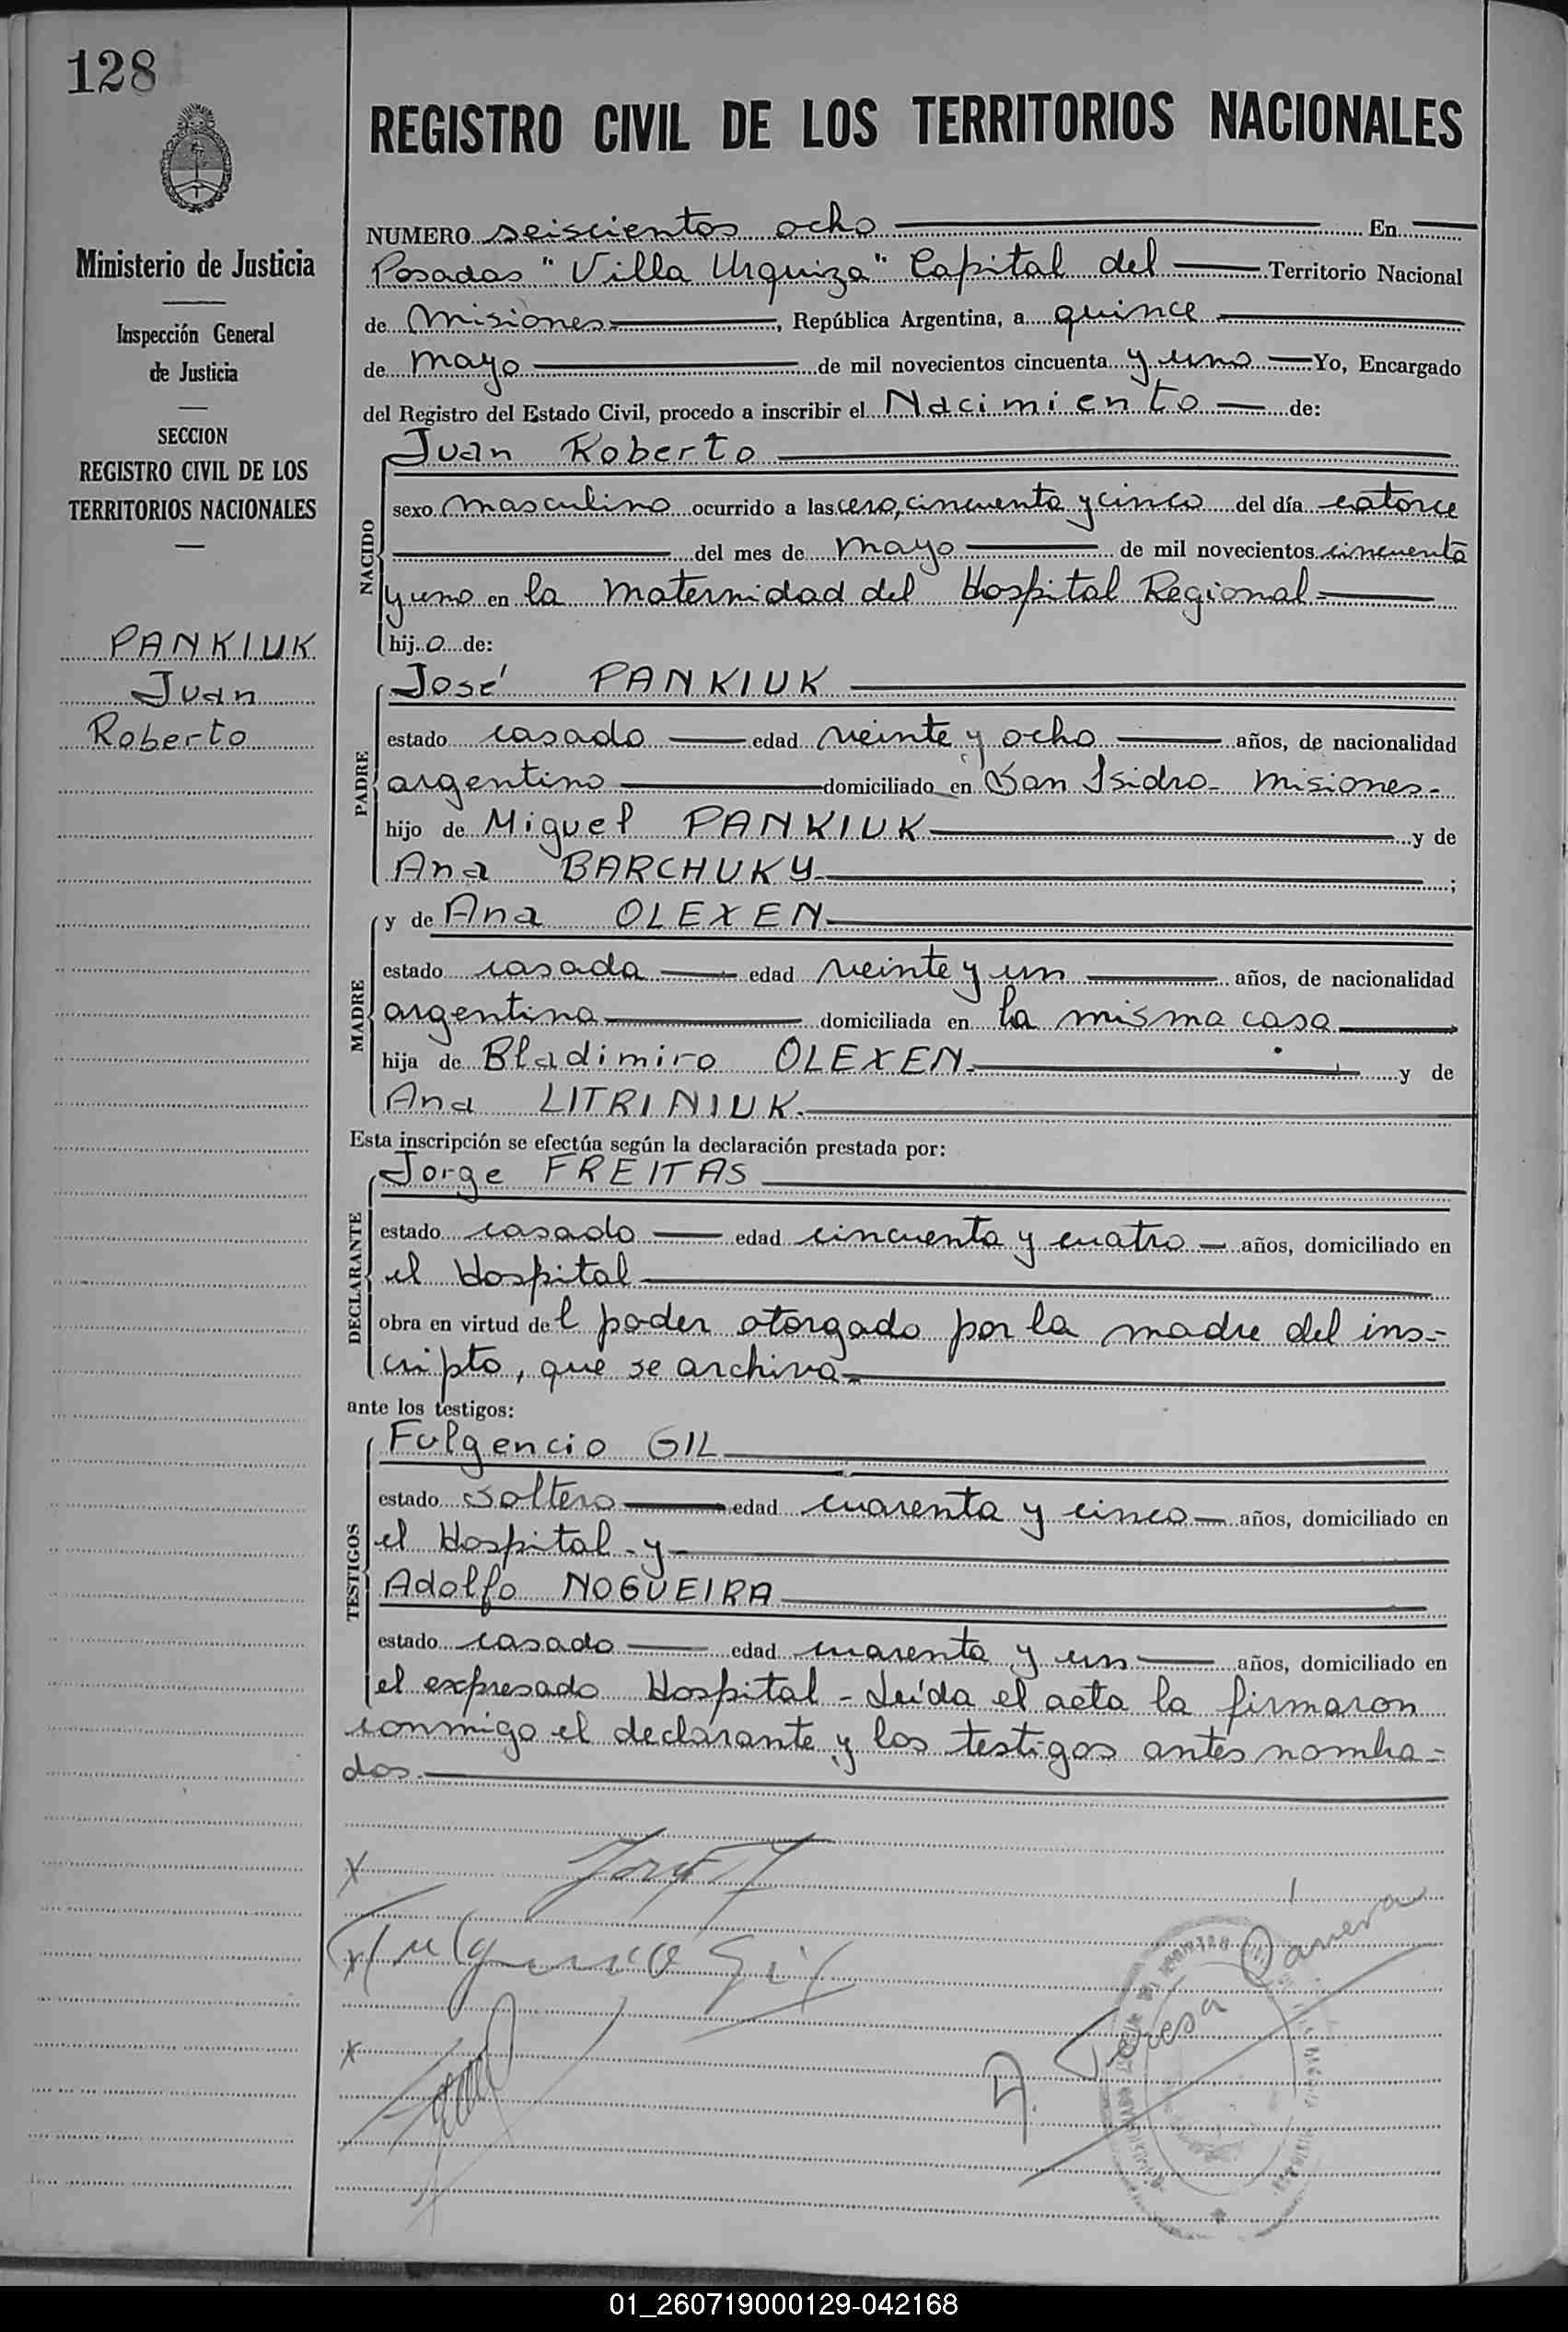 128
REGISTRO CIVIL DE LOS TERRITORIOS NACIONALES
Ministerio de Justicia
Inspección General
de Justicia
SECCION
REGISTRO CIVIL DE LOS
TERRITORIOS NACIONALES
PANKIUK
Juan
Roberto
NUMERO seiscientos ocho En
Posadas "Villa Urquiza" Capital del Territorio Nacional
de Misiones, República Argentina, a quince
de mayo de mil novecientos cincuenta y uno Yo, Encargado
del Registro del Estado Civil, procedo a inscribir el Nacimiento de:
NACIDO
Juan Roberto
sexo masculino ocurrido a las cero, cincuenta y cinco del día catorce
del mes de mayo de mil novecientos cincuenta
y uno en la maternidad del Hospital Regional
hijo de:
PADRE
José PANKIUK
estado casado edad veinte y ocho años, de nacionalidad
argentino domiciliado en San Isidro - Misiones -
hijo de Miguel PANKIUK y de
Ana BARCHUKY ;
MADRE
y de Ana OLEXEN
estado casada edad veinte y un años, de nacionalidad
argentina domiciliada en la misma casa
hija de Bladimiro OLEXEN y de
Ana LITRINIUK.
Esta inscripción se efectúa según la declaración prestada por:
DECLARANTE
Jorge FREITAS
estado casado edad cincuenta y cuatro años, domiciliado en
el Hospital
obra en virtud del poder otorgado por la madre del ins-
cripto, que se archiva
ante los testigos:
TESTIGOS
Fulgencio GIL
estado soltero edad cuarenta y cinco años, domiciliado en
el Hospital - y
Adolfo NOGUEIRA
estado casado edad cuarenta y un años, domiciliado en
el expresado Hospital - Leída el acta la firmaron
conmigo el declarante y los testigos antes nombra-
dos.
x
x Fulgencio Gil
x
A. Teresa
01_260719000129-042168